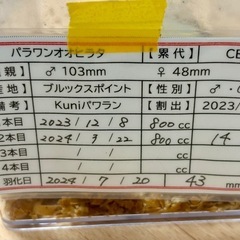 パラワンオオヒラタ 【累代】 CB
親】 ♂ 103mm ♀ 48mm
地】 ブルックスポイント 【性別】 ♂・
備考】 Kuniパワラン 【割出】 2023/
本目 2023/12/8 800cc
2本目 2024/3/22 800cc 14
3本目 / / cc
4本目 / / cc
羽化日 2024/7/20 43 mm